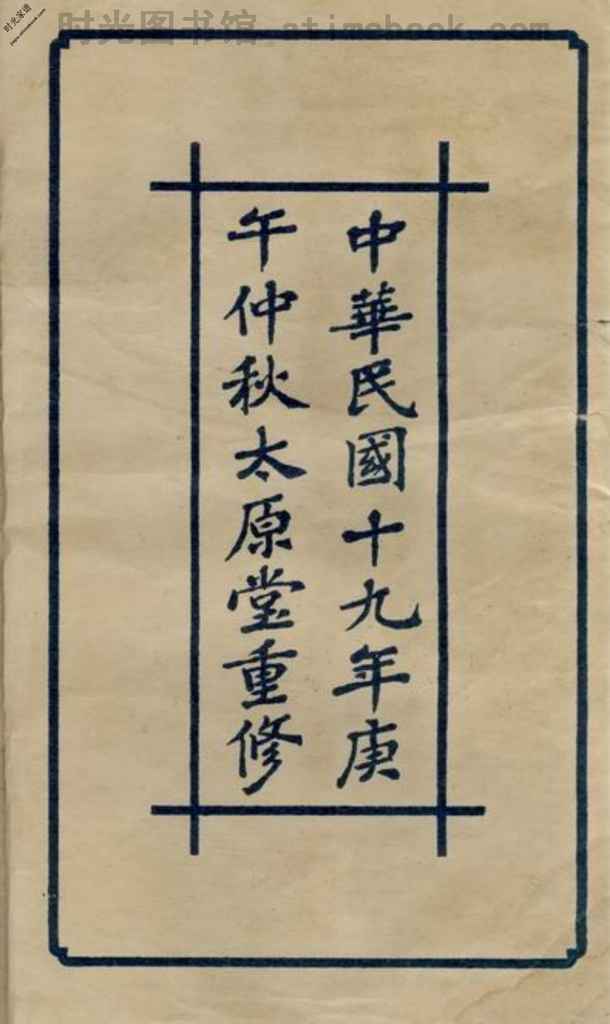 时光图书馆 otimebook.com
时光家谱
中華民國十九年庚
午仲秋太原堂重修